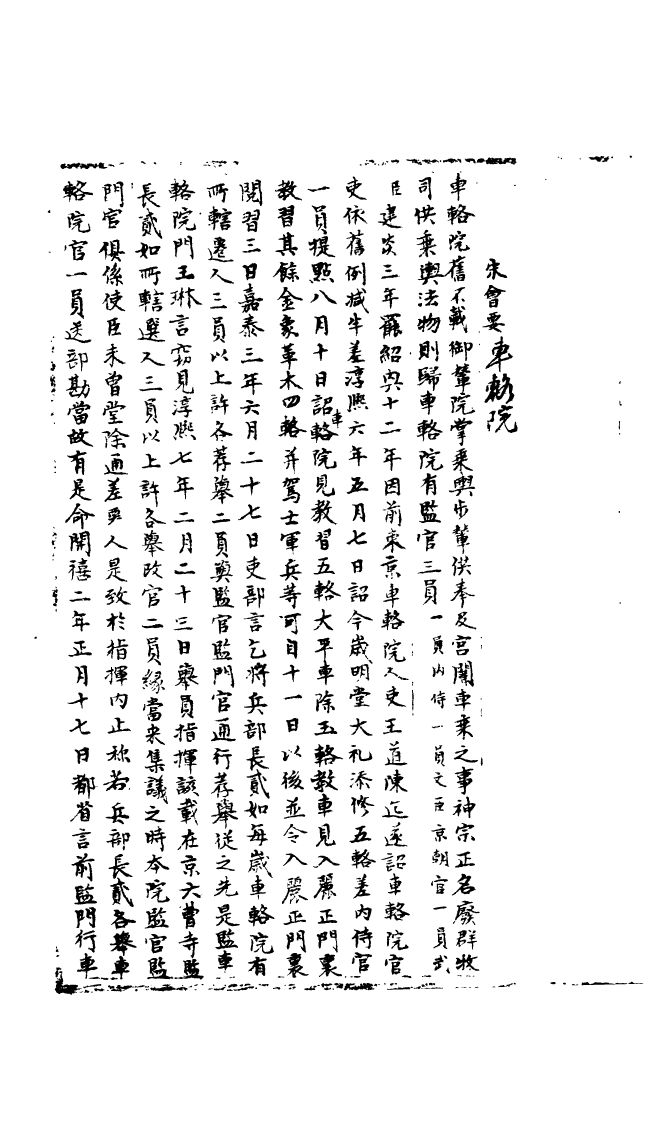 宋會要車輅院
車輅院舊不載御輦院掌乘輿步輦供奉及宮闈車乘之事神宗正名廢群牧
司供乘輿法物則歸車輅院有監官三員一員內侍一員文臣京朝官一員武
臣建炎三年罷紹興十二年因前東京車輅院人吏王道陳迄遂詔車輅院官
吏依舊例減半差淳熙六年五月七日詔今歲明堂大礼添修五輅差內侍官
一員提點八月十日詔車輅院見教習五輅大平車除玉輅教車見入麗正門裏
教習其餘金象革木四輅并駕士軍兵等可自十一日以後並令入麗正門裏
閱習三日嘉泰三年六月二十七日吏部言乞將兵部長貳如每歲車輅院有
所轄選人三員以上許各荐舉二員與監官監門官通行荐舉從之先是監車
輅院門王琳言竊見淳熙七年二月二十三日舉員指揮該載在京六曹寺監
長貳如所轄選人三員以上許各舉改官二員緣當來集議之時本院監官監
門官俱係使臣未曾堂除通差選人是致於指揮內止稱若兵部長貳各舉車
輅院官一員送部勘當故有是命開禧二年正月十七日都省言前監門行車